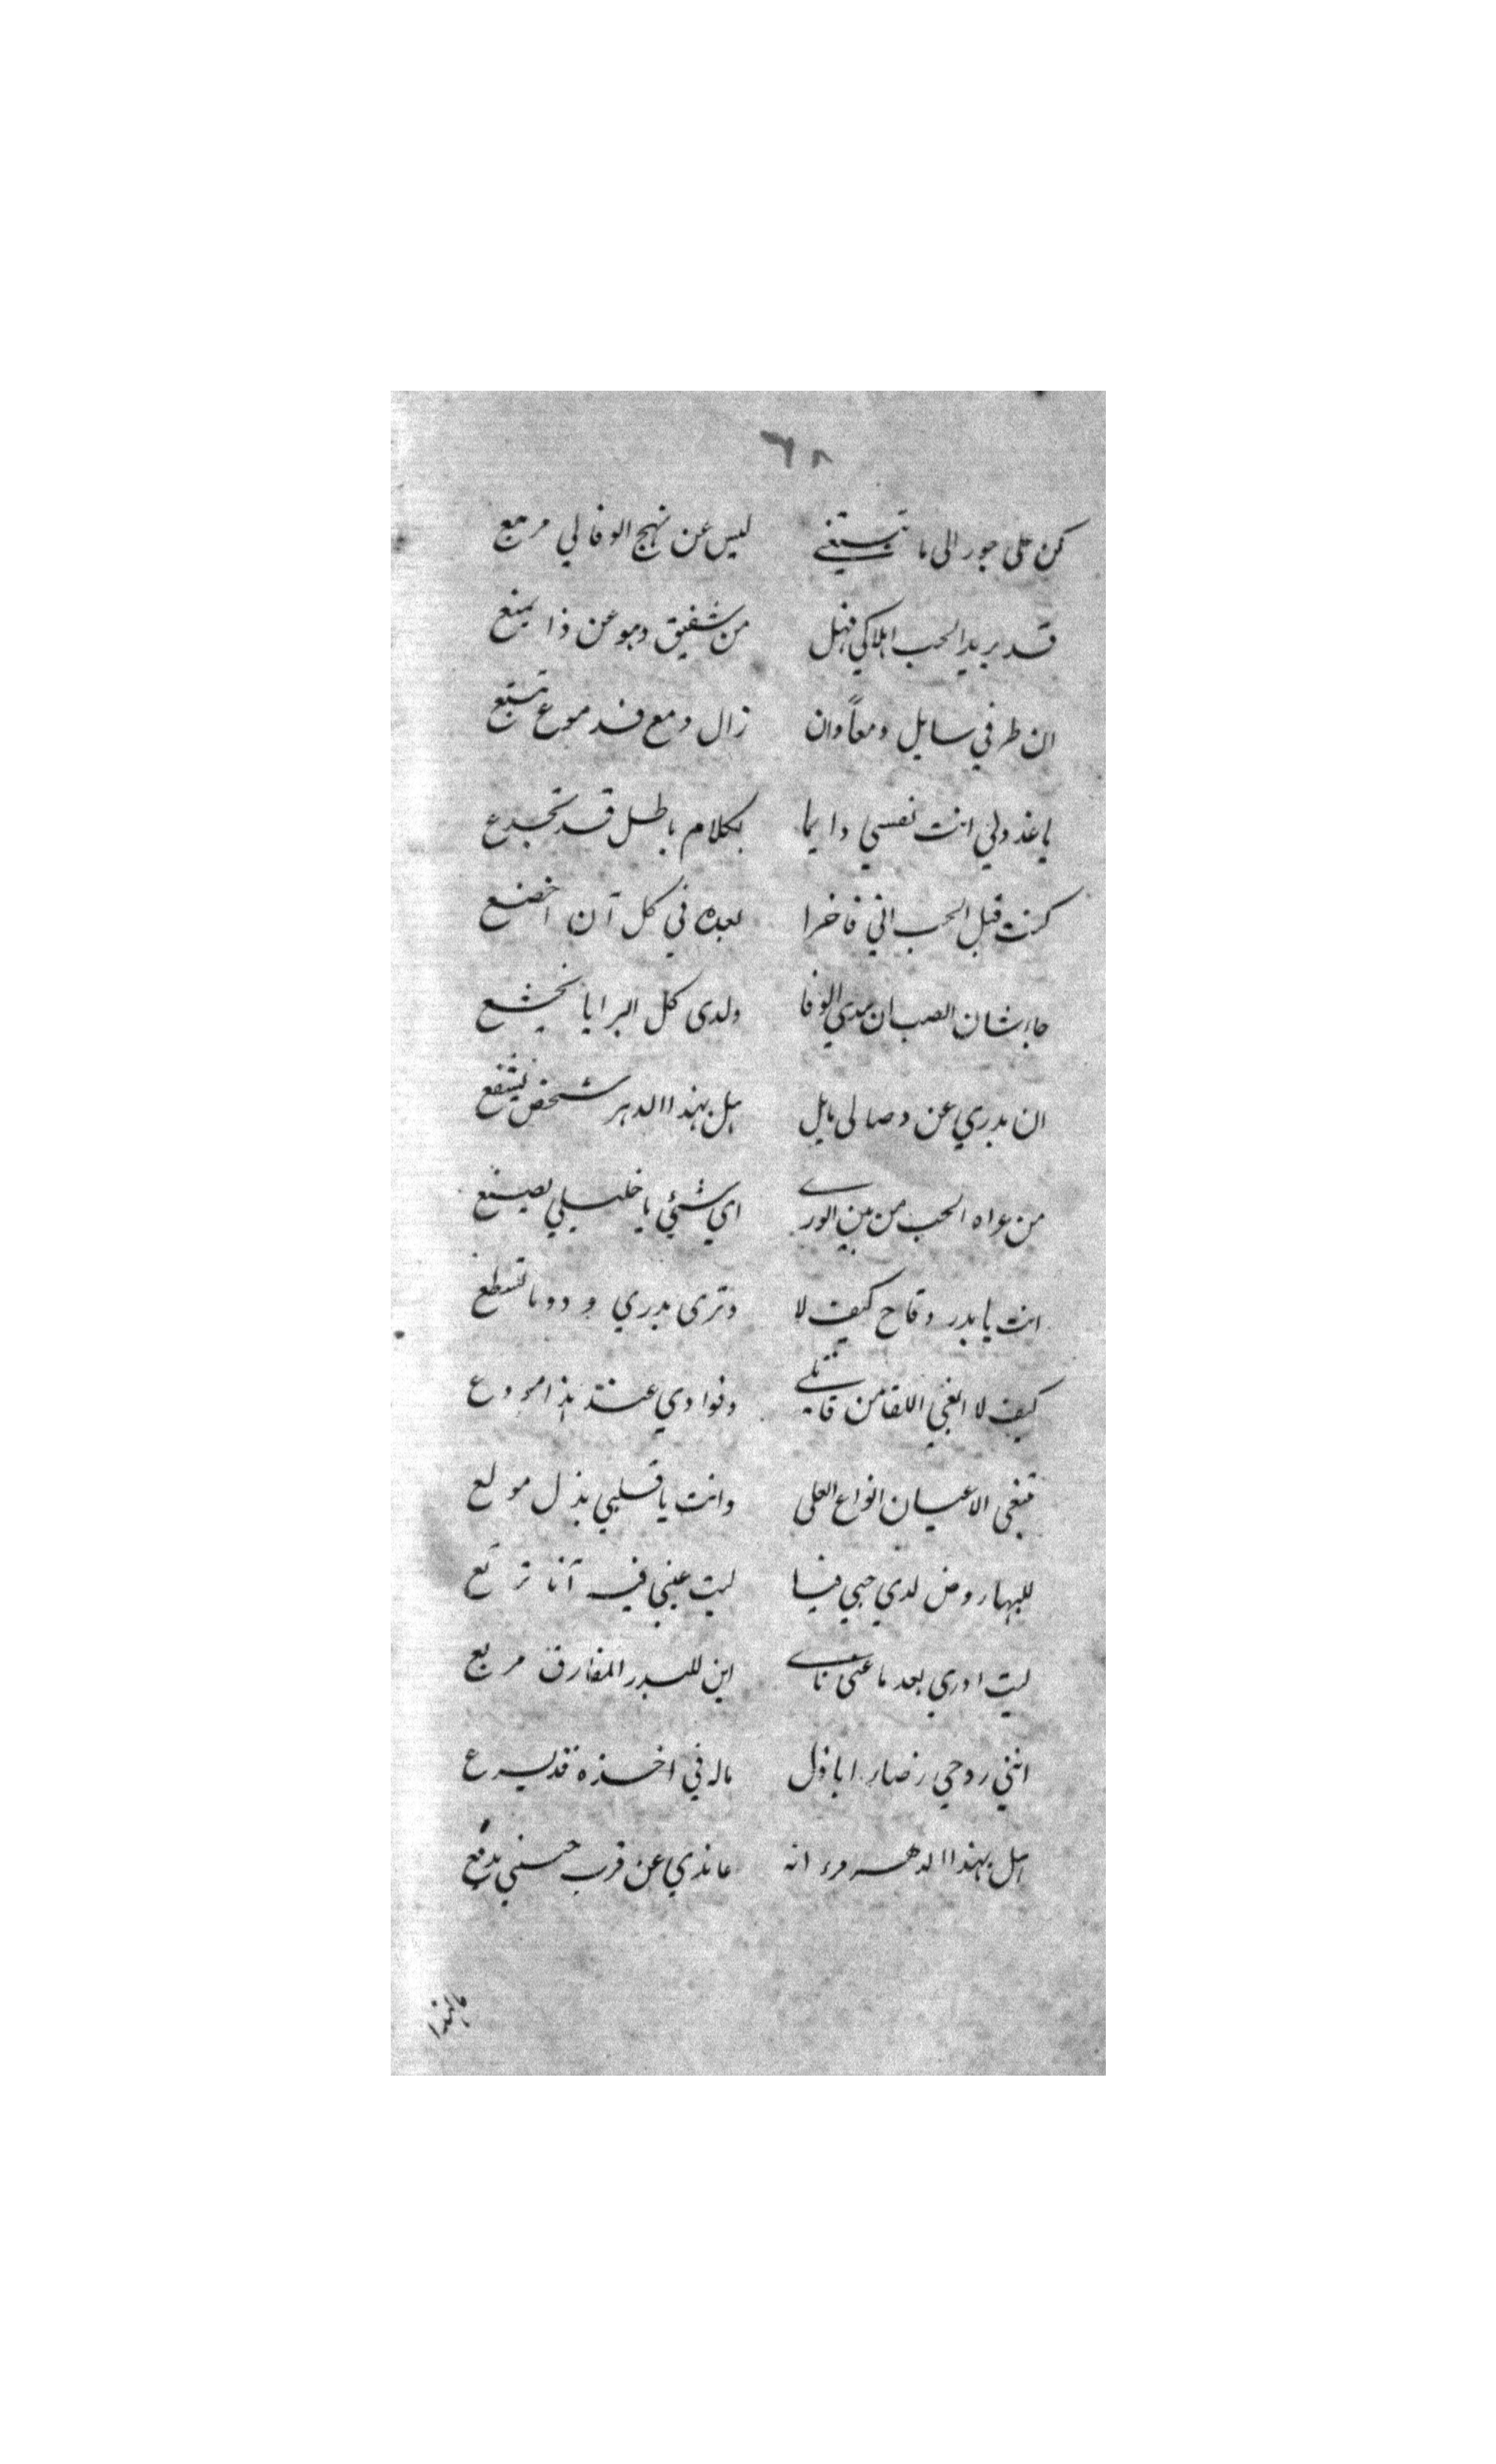 ٦٨
كن على جور الى ما تبتغي ليس عن نهج الوفا لي مرجع
قد يريد الحب اهلاكي فهل من شفيق وهو عن ذا يمنع
ان طرفي سايل دمعاً وان زال دمع فدموع تتبع
يا عذولي انت نفسي دايما بكلام باطل قد تخدع
كنت قبل الحب اني فاخرا بعده في كل آن اخضع
جاء شان الصب ان يبدي الوفا ولدى كل البرايا يخشع
ان بدري عن وصالى مايل هل بهذا الدهر شخص يشفع
من عراه الحب من بين الورى اي شئي يا خليلي يصنع
انت يا بدر وقاح كيف لا وترى بدري ودوما تسطع
كيف لا ابغي اللقا من قاتلي وفوادي عند هذا مودع
تبغي الاعيان انواع العلى وانت يا قلبي بذل مولع
للبها روض لدي حبي فيا ليت عيني فيه آنا ترتع
ليت ادري بعد ما عني نأى اين للبدر المفارق مربع
انني روحي رضاء باذل ماله في اخذه قد يسرع
هل بهذا الدهر مرء انه عاذلي عن قرب حسني يدفع
ما لهذا